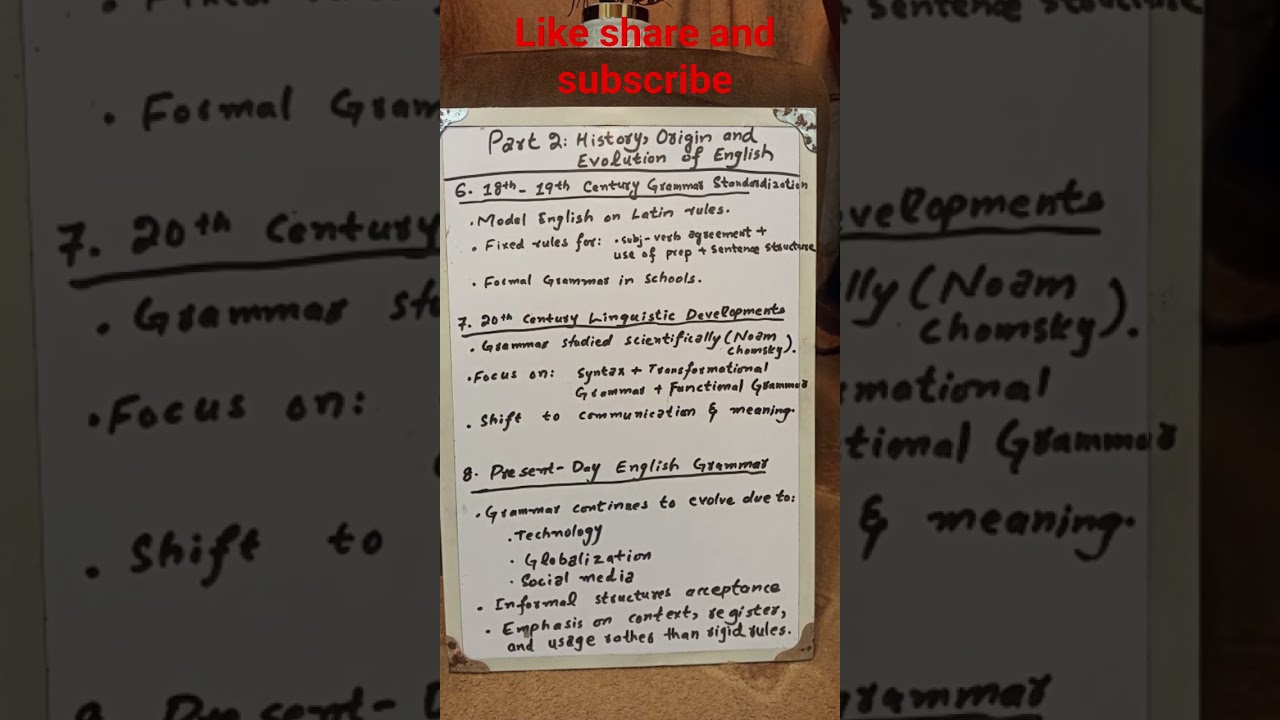 Like share and
subscribe
Part 2: History, Origin and
Evolution of English
6. 18th - 19th Century Grammar Standardization
• Model English on Latin rules.
• Fixed rules for: • subj-verb agreement +
use of prep + sentence structure
• Formal Grammar in schools.
7. 20th Century Linguistic Developments
• Grammar studied scientifically (Noam
Chomsky).
• Focus on: Syntax + Transformational
Grammar + Functional Grammar
• Shift to communication & meaning.
8. Present-Day English Grammar
• Grammar continues to evolve due to:
• Technology
• Globalization
• Social media
• Informal structures acceptance
• Emphasis on context, register,
and usage rather than rigid rules.